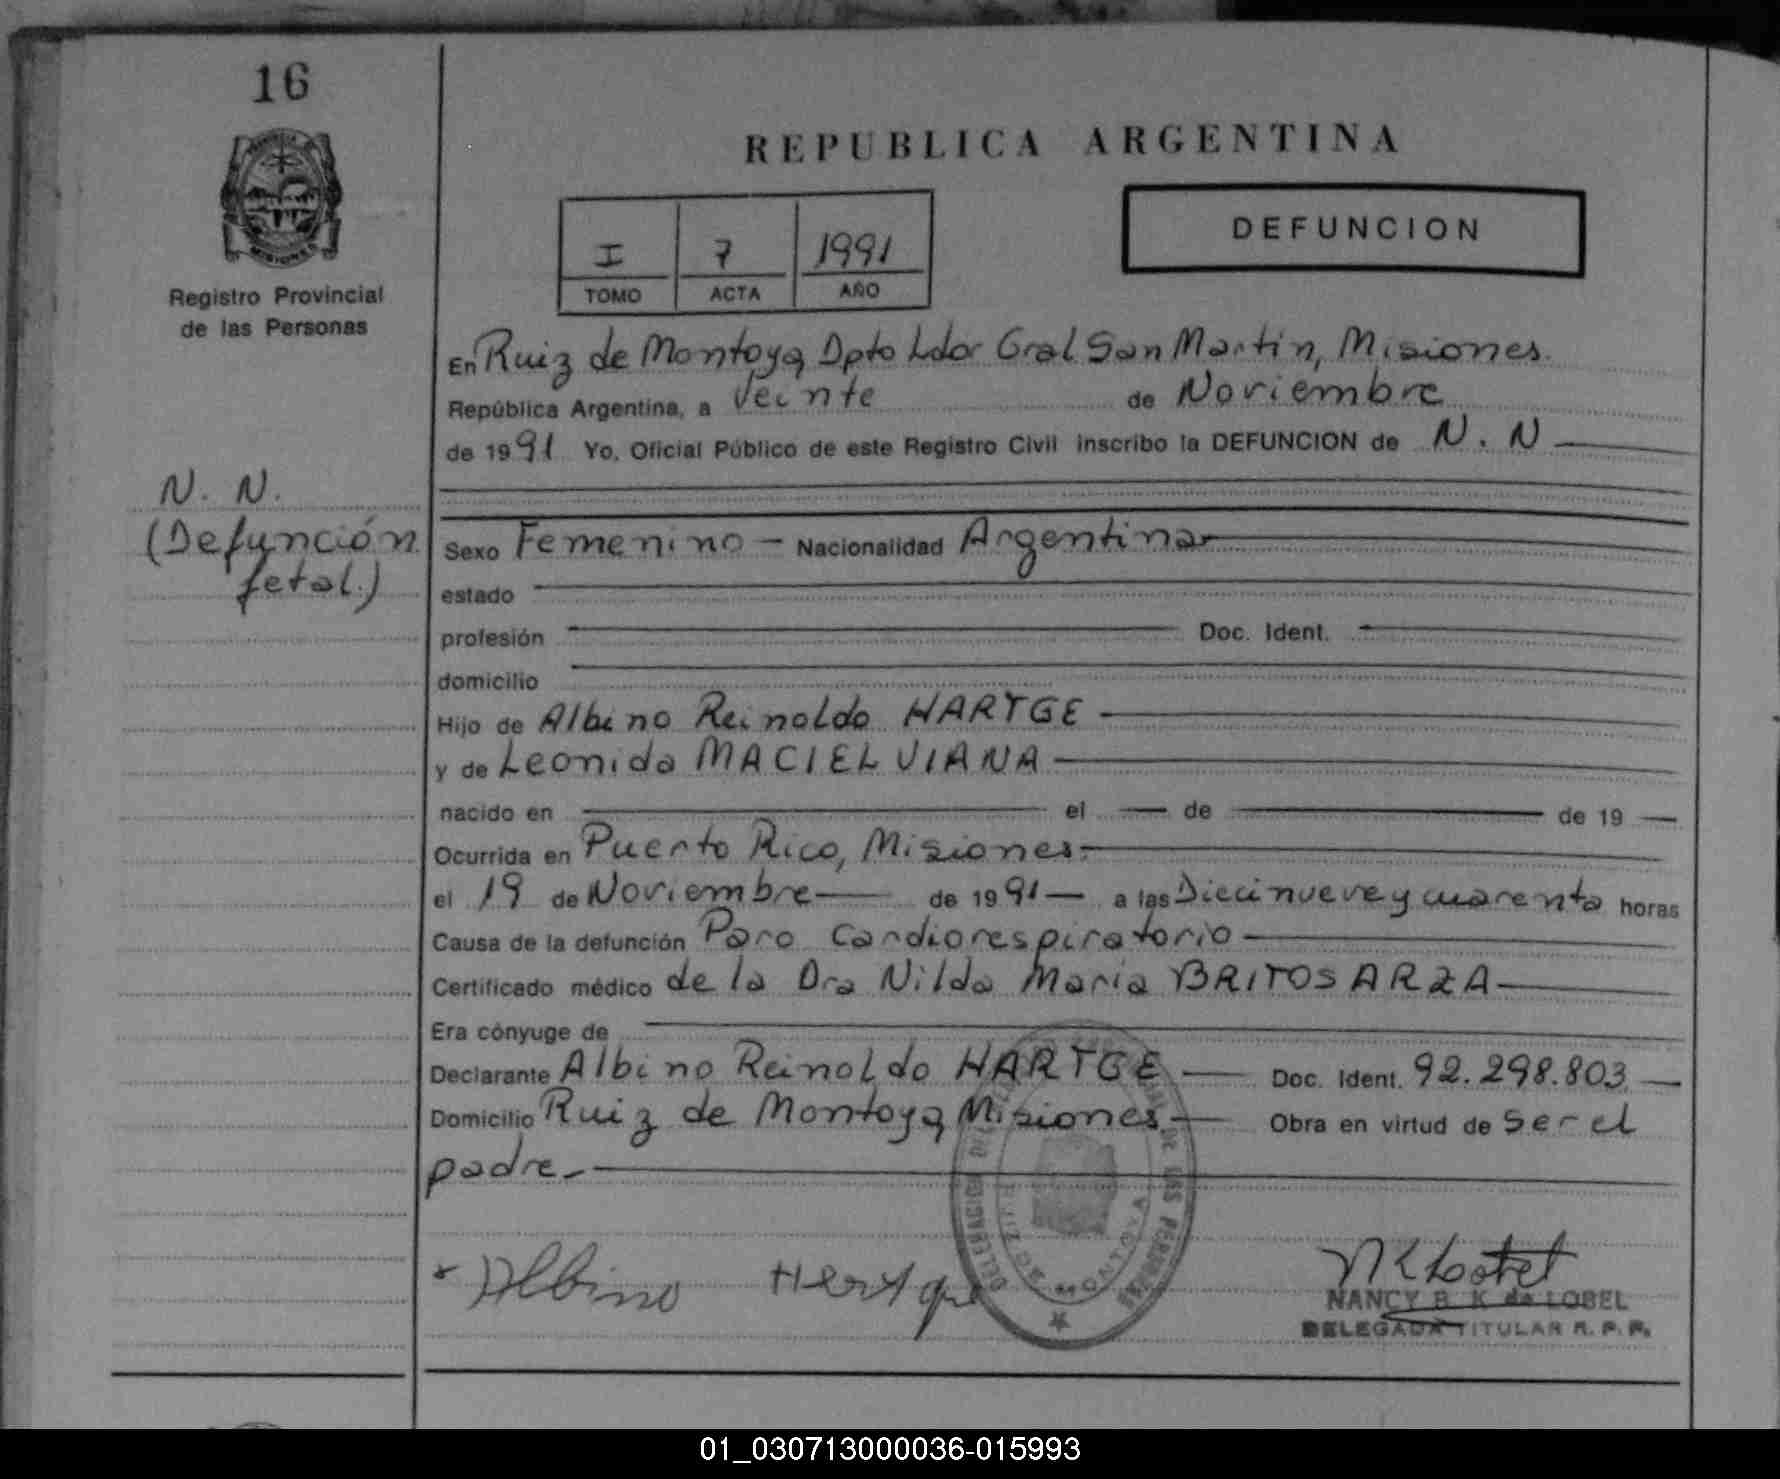 16
REPUBLICA ARGENTINA
DEFUNCION
I 7 1991
TOMO ACTA AÑO
MISIONES
Registro Provincial
de las Personas
En Ruiz de Montoya, Dpto Ldor Gral San Martin, Misiones.
República Argentina, a Veinte de Noviembre
de 1991 Yo, Oficial Público de este Registro Civil inscribo la DEFUNCION de N. N
N. N.
(Defunción
fetal.)
Sexo Femenino - Nacionalidad Argentina
estado
profesión Doc. Ident.
domicilio
Hijo de Albino Reinoldo HARTGE
y de Leonida MACIEL VIANA
nacido en el de de 19
Ocurrida en Puerto Rico, Misiones.
el 19 de Noviembre de 1991 a las Diecinueve y cuarenta horas
Causa de la defunción Paro cardiorespiratorio
Certificado médico de la Dra Nilda Maria BRITOS ARZA
Era cónyuge de
Declarante Albino Reinoldo HARTGE Doc. Ident. 92.298.803
Domicilio Ruiz de Montoya, Misiones Obra en virtud de ser el
padre.
DELEGACION DE LAS PERSONAS
RUIZ DE MONTOYA
Albino Hertge
NANCY B. K. de LOBEL
DELEGADA TITULAR R. P. P.
01_030713000036-015993